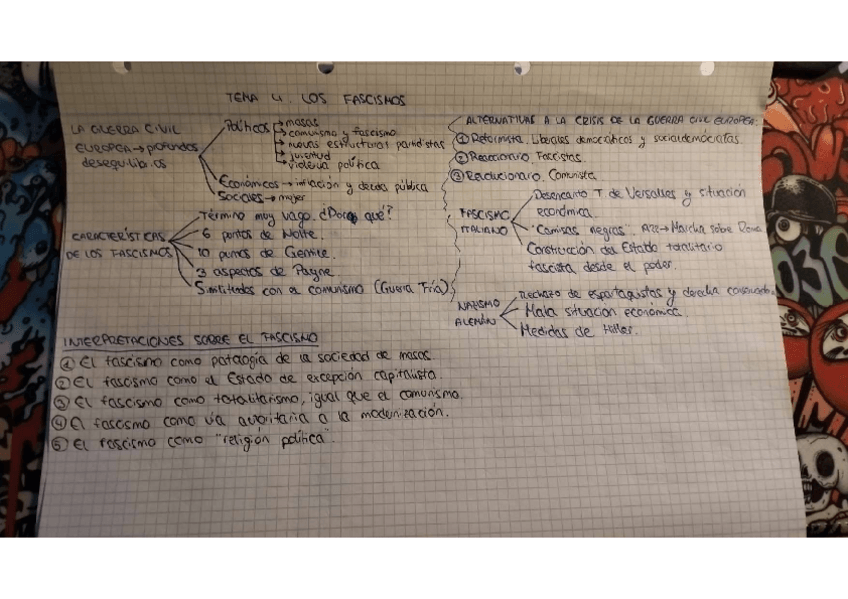 TEMA 4: LOS FASCISMOS
LA GUERRA CIVIL
EUROPEA → profundos
desequilibrios
Políticos
→ masas
→ comunismo y fascismo
→ nuevas estructuras partidistas
→ juventud
→ violencia política
Económicos → inflación y deuda pública
Sociales → mujer
CARACTERÍSTICAS
DE LOS FASCISMOS
Término muy vago. ¿Por qué?
6 puntos de Nolte.
10 puntos de Gentile.
3 aspectos de Payne.
Similitudes con el comunismo (Guerra Fría)
INTERPRETACIONES SOBRE EL FASCISMO
① El fascismo como patología de la sociedad de masas.
② El fascismo como el Estado de excepción capitalista.
③ El fascismo como totalitarismo, igual que el comunismo.
④ El fascismo como vía autoritaria a la modernización.
⑤ El fascismo como "religión política".
ALTERNATIVAS A LA CRISIS DE LA GUERRA CIVIL EUROPEA:
① Reformista. Liberales democráticos y socialdemócratas.
② Reaccionario. Fascistas.
③ Revolucionario. Comunista.
FASCISMO
ITALIANO
Desencanto T. de Versalles y situación
económica.
"Camisas negras". → Marcha sobre Roma
Construcción del Estado totalitario
fascista desde el poder.
NAZISMO
ALEMÁN
Rechazo de espartaquistas y derecha
Mala situación económica.
Medidas de Hitler.